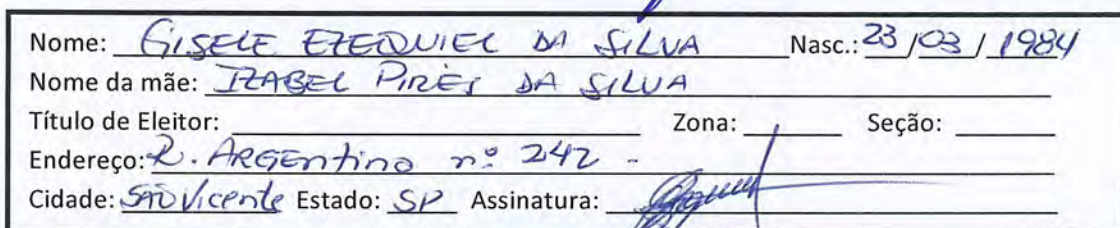 Nome: GISELE EZEQUIEL DA SILVA Nasc.: 23/03/1984
Nome da mãe: IZABEL PIRES DA SILVA
Título de Eleitor: Zona: Seção:
Endereço: R. ARGENTINA nº 242 -
Cidade: SÃO VICENTE Estado: SP Assinatura: